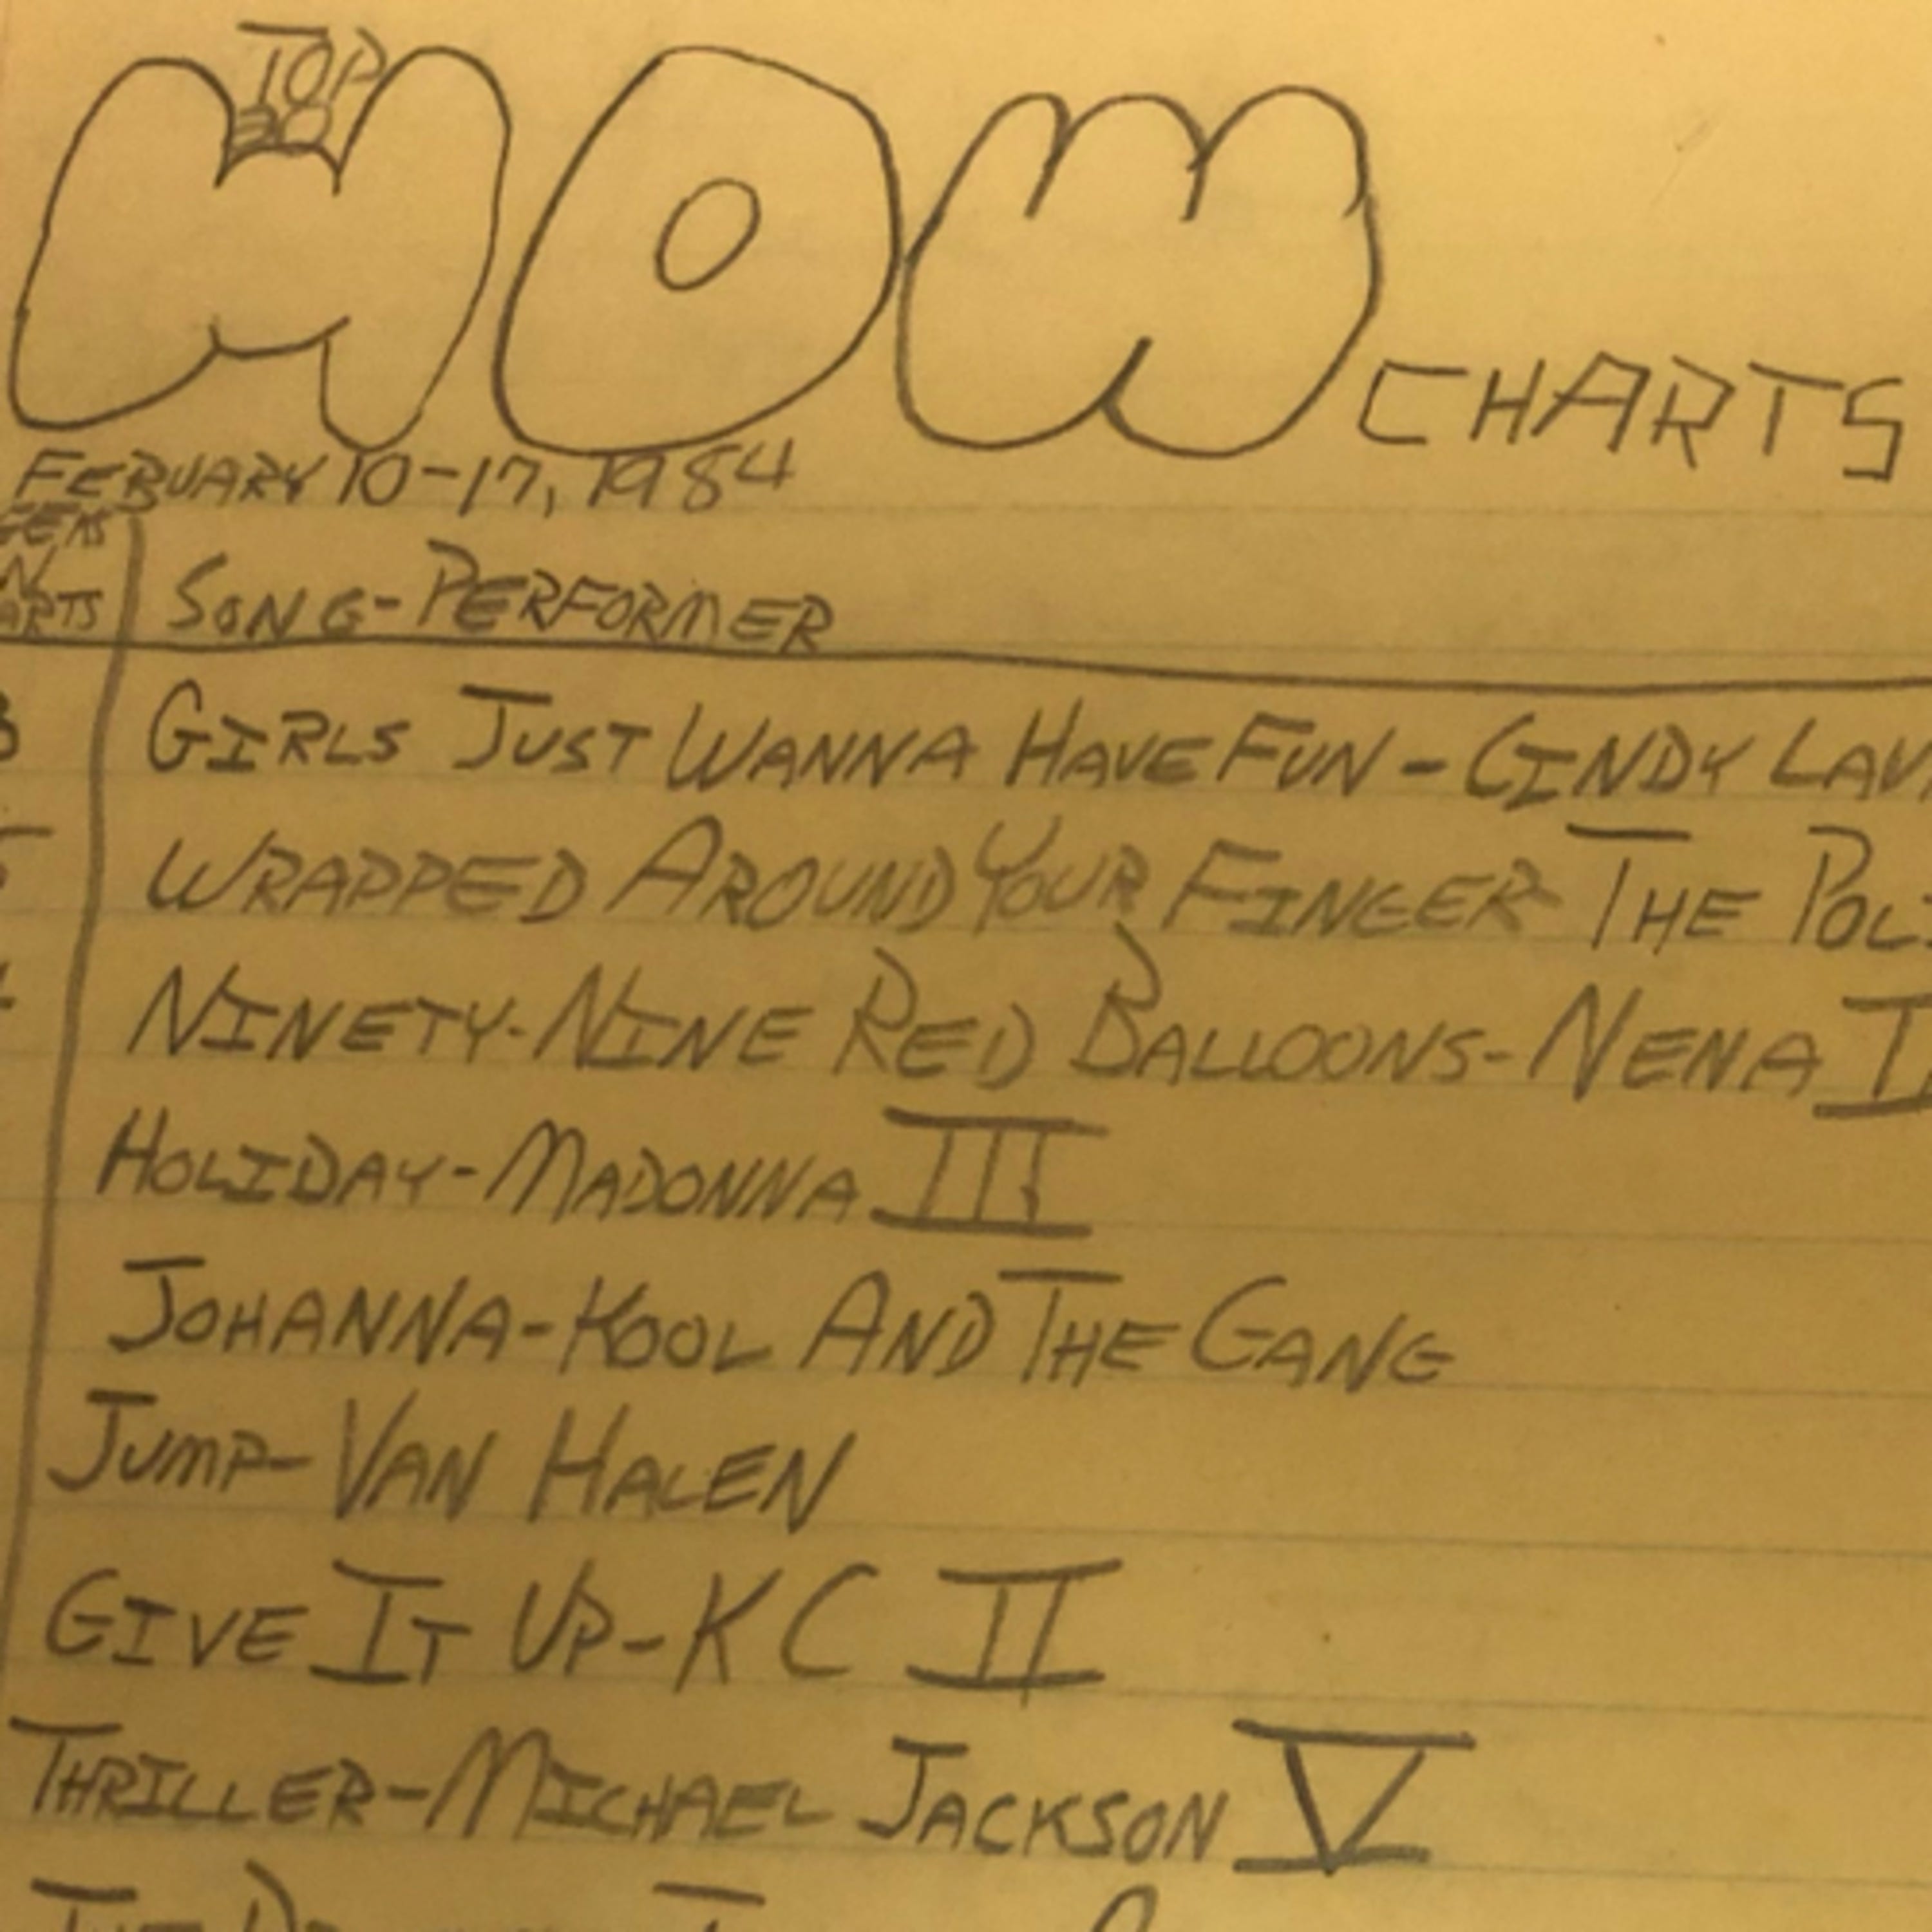 TOP
30
HOW CHARTS
FEBUARY 10-17, 1984
EEKS
N
ARTS
SONG-PERFORMER
3 GIRLS JUST WANNA HAVE FUN - CINDY LAU
5 WRAPPED AROUND YOUR FINGER THE POLI
NINETY-NINE RED BALLOONS-NENA I
HOLIDAY-MADONNA III
JOHANNA-KOOL AND THE GANG
JUMP-VAN HALEN
GIVE IT UP-KC II
THRILLER-MICHAEL JACKSON V